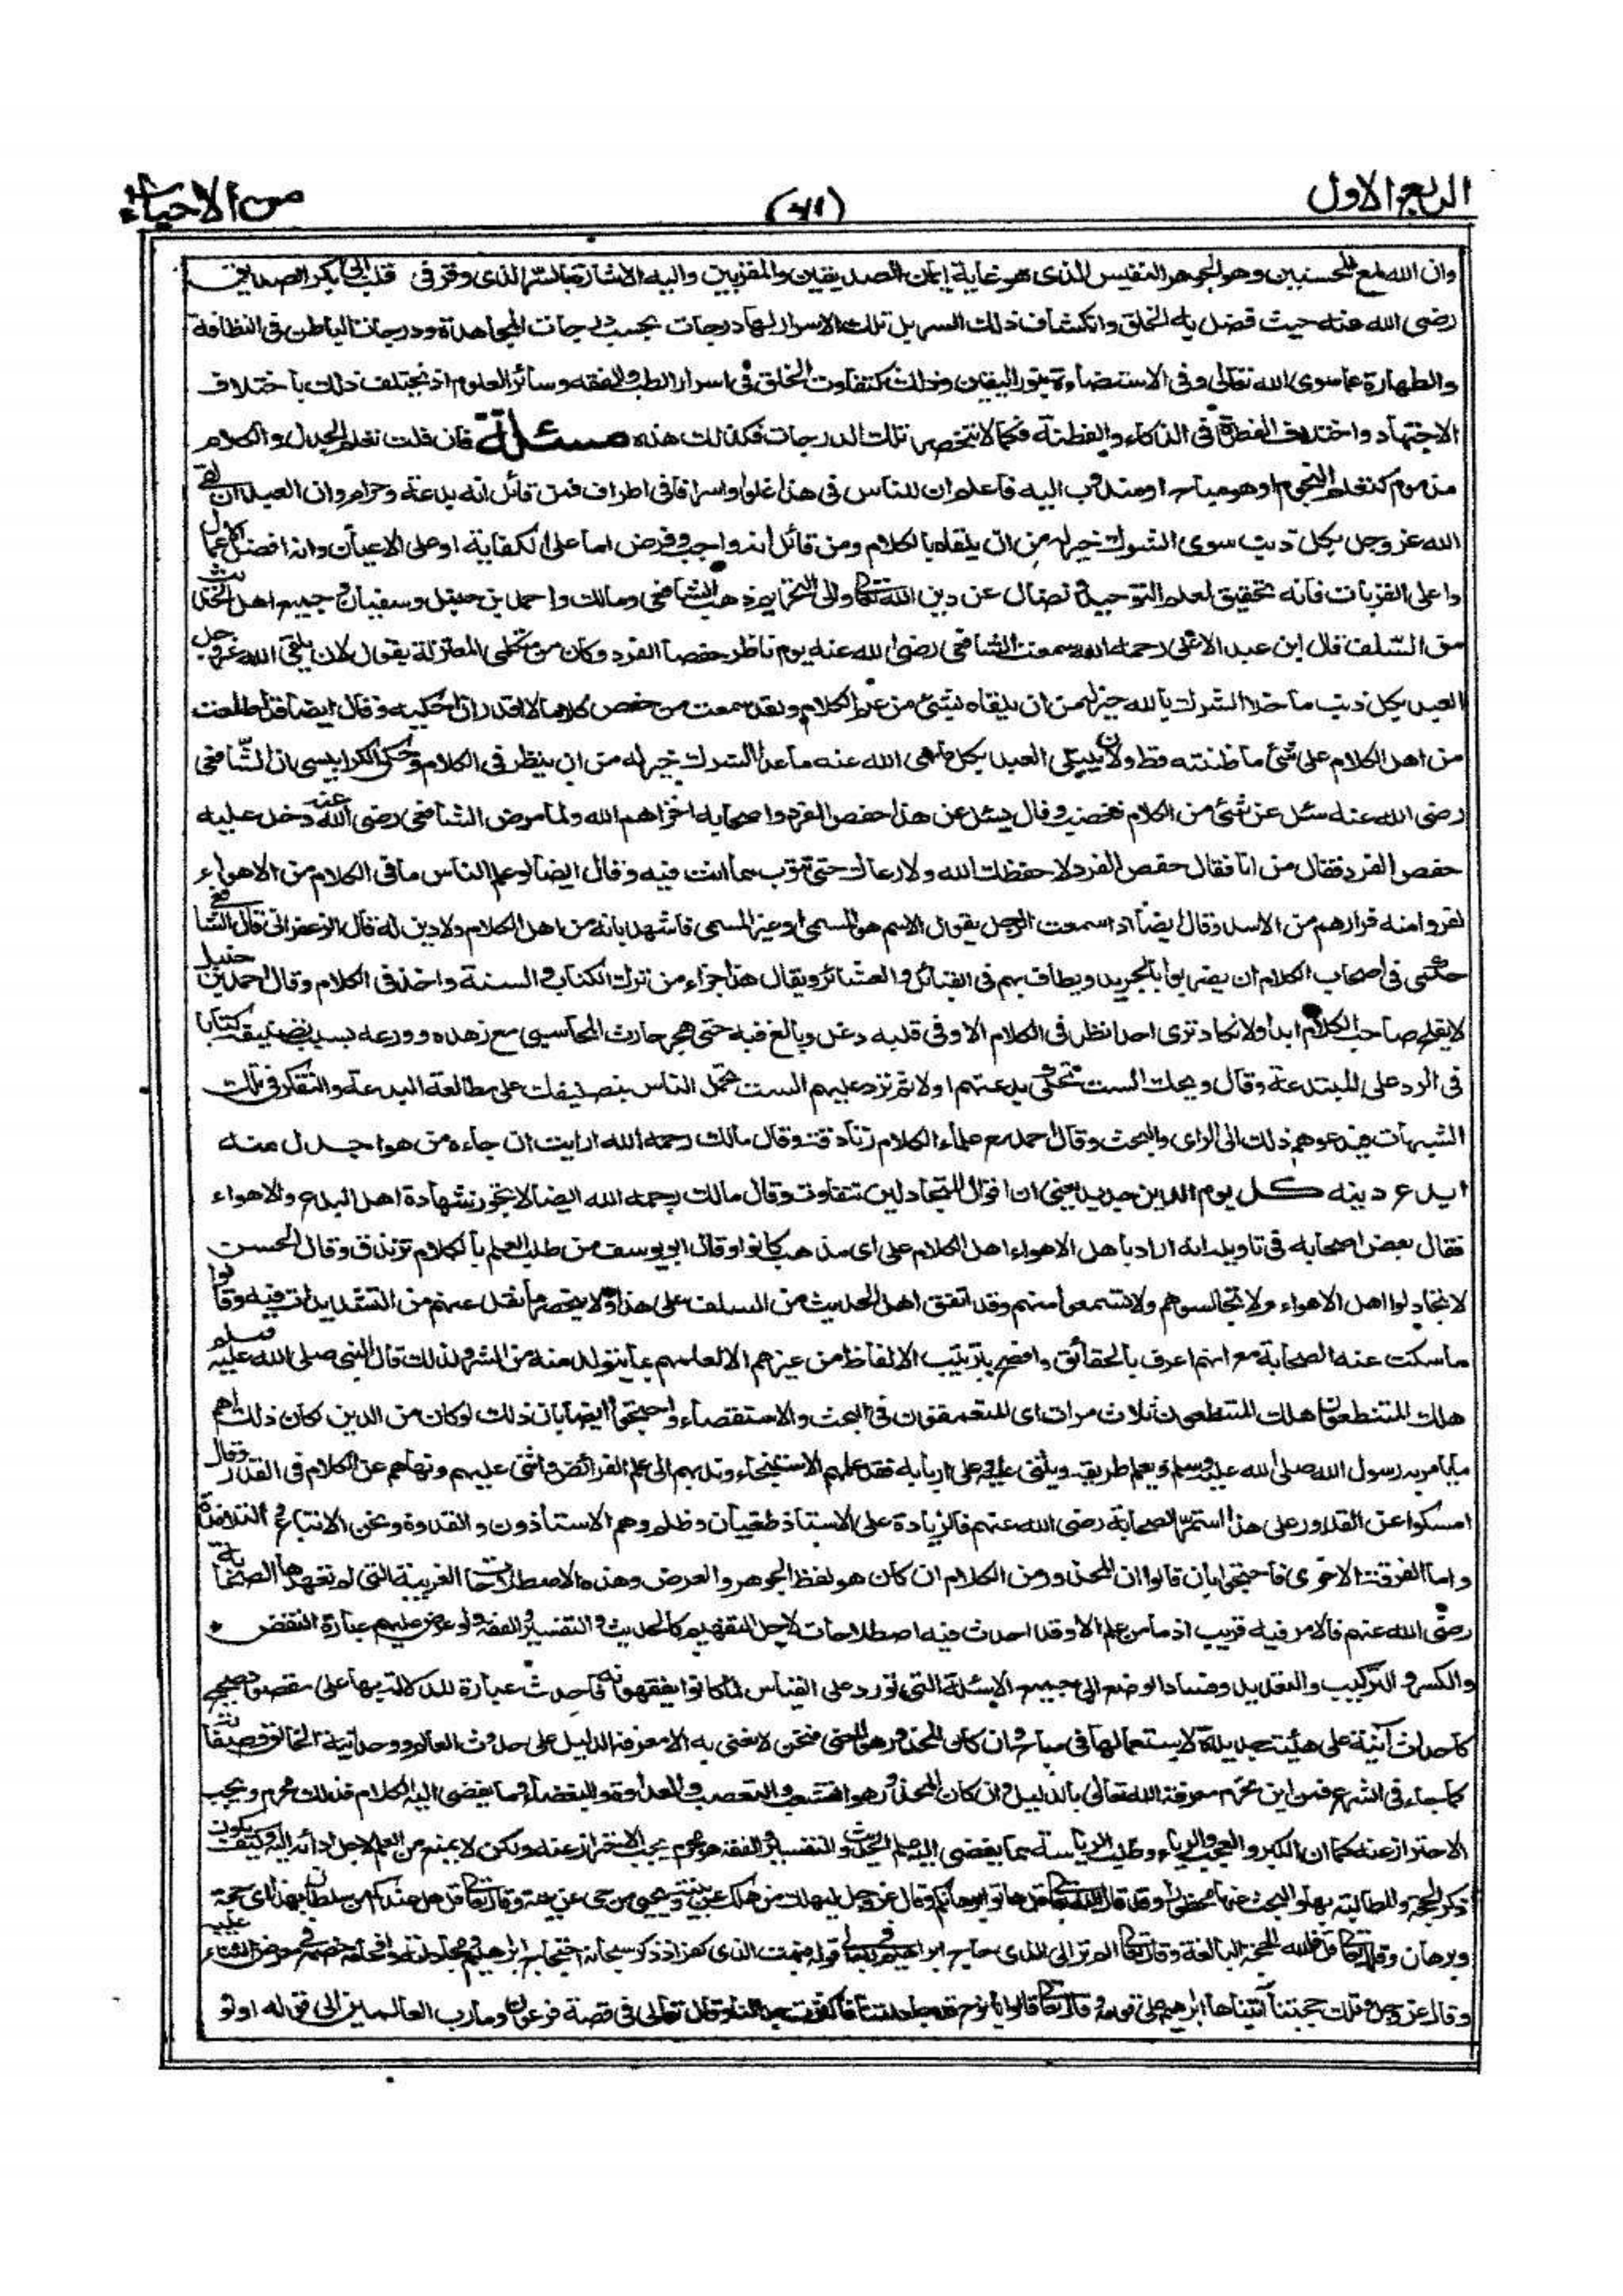 الربع الاول
(٧١)
من الاحياء
وان الله لمع المحسنين وهو الجوهر النفيس الذى هو غاية ايمان الصديقين والمقربين واليه الاشارة بالسر الذى وقر فى قلب ابى بكر الصديق
رضى الله عنه حيث فضل به الخلق وانكشاف ذلك السر بل تلك الاسرار لها درجات بحسب درجات المجاهدة ودرجات الباطن فى النظافة
والطهارة عما سوى الله تعالى وفى الاستضاءة بنور اليقين وذلك كتفاوت الخلق فى اسرار الطب والفقه وسائر العلوم اذ يختلف ذلك باختلاف
الاجتهاد واختلاف الفطرة فى الذكاء والفطنة فكما لا تنحصر تلك الدرجات فكذلك هذه مسئلة فان قلت تعلم الجدل والكلام
مذموم كتعلم النجوم او هو مباح او مندوب اليه فاعلم ان للناس فى هذا غلوا واسرافا فى اطراف فمن قائل انه بدعة وحرام وان العبد ان لقى
الله عز وجل بكل ذنب سوى الشرك خير له من ان يلقاه بالكلام ومن قائل انه واجب وفرض اما على الكفاية او على الاعيان وانه افضل الاعمال
واعلى القربات فانه تحقيق لعلم التوحيد ونضال عن دين الله تعالى والى التحريم ذهب الشافعى ومالك واحمد بن حنبل وسفيان وجميع اهل الحديث
من السلف قال ابن عبد الاعلى رحمه الله سمعت الشافعى رضى الله عنه يوم ناظر حفصا الفرد وكان من متكلمى المعتزلة يقول لان يلقى الله عز وجل
العبد بكل ذنب ما خلا الشرك بالله خير له من ان يلقاه بشئ من علم الكلام ولقد سمعت من حفص كلاما لا اقدر ان احكيه وقال ايضا قد اطلعت
من اهل الكلام على شئ ما ظننته قط ولان يبتلى العبد بكل ما نهى الله عنه ما عدا الشرك خير له من ان ينظر فى الكلام وحكى الكرابيسى ان الشافعى
رضى الله عنه سئل عن شئ من الكلام فغضب وقال يسئل عن هذا حفص الفرد واصحابه اخزاهم الله ولما مرض الشافعى رضى الله عنه دخل عليه
حفص الفرد فقال من انا فقال حفص الفرد لا حفظك الله ولا رعاك حتى تتوب مما انت فيه وقال ايضا لو علم الناس ما فى الكلام من الاهواء
لفروا منه فرارهم من الاسد وقال ايضا اذا سمعت الرجل يقول الاسم هو المسمى او غير المسمى فاشهد بانه من اهل الكلام ولا دين له قال الزعفرانى قال الشافعى
حكمى فى اصحاب الكلام ان يضربوا بالجريد ويطاف بهم فى القبائل والعشائر ويقال هذا جزاء من ترك الكتاب والسنة واخذ فى الكلام وقال احمد بن حنبل
لا يفلح صاحب الكلام ابدا ولا تكاد ترى احدا نظر فى الكلام الا وفى قلبه دغل وبالغ فيه حتى هجر حارث المحاسبى مع زهده وورعه بسبب تصنيفه كتابا
فى الرد على المبتدعة وقال ويحك الست تحكى بدعتهم اولا ثم ترد عليهم الست تحمل الناس بتصنيفك على مطالعة البدعة والتفكر فى تلك
الشبهات فيدعوهم ذلك الى الراى والبحث وقال احمد رح علماء الكلام زنادقة وقال مالك رحمه الله ارايت ان جاءه من هو اجدل منه
ايدع دينه كل يوم لدين جديد يعنى ان اقوال المتجادلين تتفاوت وقال مالك رحمه الله ايضا لا تجوز شهادة اهل البدع والاهواء
فقال بعض اصحابه فى تاويله انه اراد باهل الاهواء اهل الكلام على اى مذهب كانوا وقال ابو يوسف من طلب العلم بالكلام تزندق وقال الحسن
لا تجادلوا اهل الاهواء ولا تجالسوهم ولا تسمعوا منهم وقد اتفق اهل الحديث من السلف على هذا ولا ينحصر ما نقل عنهم من التشديدات فيه وقالوا
ما سكت عنه الصحابة مع انهم اعرف بالحقائق وافصح بترتيب الالفاظ من غيرهم الا لعلمهم بما يتولد منه من الشر ولذلك قال النبى صلى الله عليه وسلم
هلك المتنطعون هلك المتنطعون ثلاث مرات اى المتعمقون فى البحث والاستقصاء واحتجوا ايضا بان ذلك لو كان من الدين لكان ذلك اهم
ما يامر به رسول الله صلى الله عليه وسلم ويعلم طريقه ويثنى عليه وعلى اربابه فقد علمهم الاستنجاء وندبهم الى علم الفرائض واثنى عليهم ونهاهم عن الكلام فى القدر وقال
امسكوا عن القدر وعلى هذا استمر الصحابة رضى الله عنهم فالزيادة على الاستاذ طغيان وظلم وهم الاستاذون والقدوة ونحن الاتباع والتلامذة
واما الفرقة الاخرى فاحتجوا بان قالوا ان المحذور من الكلام ان كان هو لفظ الجوهر والعرض وهذه الاصطلاحات الغريبة التى لم تعهدها الصحابة
رضى الله عنهم فالامر فيه قريب اذ ما من علم الا وقد احدث فيه اصطلاحات لاجل التفهيم كالحديث والتفسير والفقه ولو عرض عليهم عبارة النقض
والكسر والتركيب والتعديل وفساد الوضع الى جميع الاسئلة التى تورد على القياس لما كانوا يفقهونه فاحداث عبارة للدلالة بها على مقصود صحيح
كاحداث آنية على هيئت جديدة لاستعمالها فى مباح وان كان المحذور هو المعنى فنحن لا نعنى به الا معرفة الدليل على حدوث العالم ووحدانية الخالق وصفاته
كما جاء فى الشرع فمن اين تحرم معرفة الله تعالى بالدليل وان كان المحذور هو التشعب والتعصب والعداوة والبغضاء وما يفضى اليه الكلام فذلك محرم ويجب
الاحتراز عنه كما ان الكبر والعجب والرياء وطلب الرياسة مما يفضى اليه علم الحديث والتفسير والفقه وهو محرم يجب الاحتراز عنه ولكن لا يمنع من العلم لاجل ادائه اليه وكيف يكون
ذكر الحجة والمطالبة بها والبحث عنها محظورا وقد قال الله تعالى قل هاتوا برهانكم وقال عز وجل ليهلك من هلك عن بينة ويحيى من حى عن بينة وقال تعالى قل هل عندكم من سلطان بهذا اى حجة
وبرهان وقال تعالى قل فلله الحجة البالغة وقال تعالى الم تر الى الذى حاج ابراهيم فى ربه الى قوله فبهت الذى كفر اذ ذكر سبحانه احتجاج ابراهيم ومجادلته وافحامه خصمه فى معرض الثناء عليه
وقال عز وجل وتلك حجتنا آتيناها ابراهيم على قومه وقال تعالى قالوا يا نوح قد جادلتنا فاكثرت جدالنا وقال تعالى فى قصة فرعون وما رب العالمين الى قوله اولو